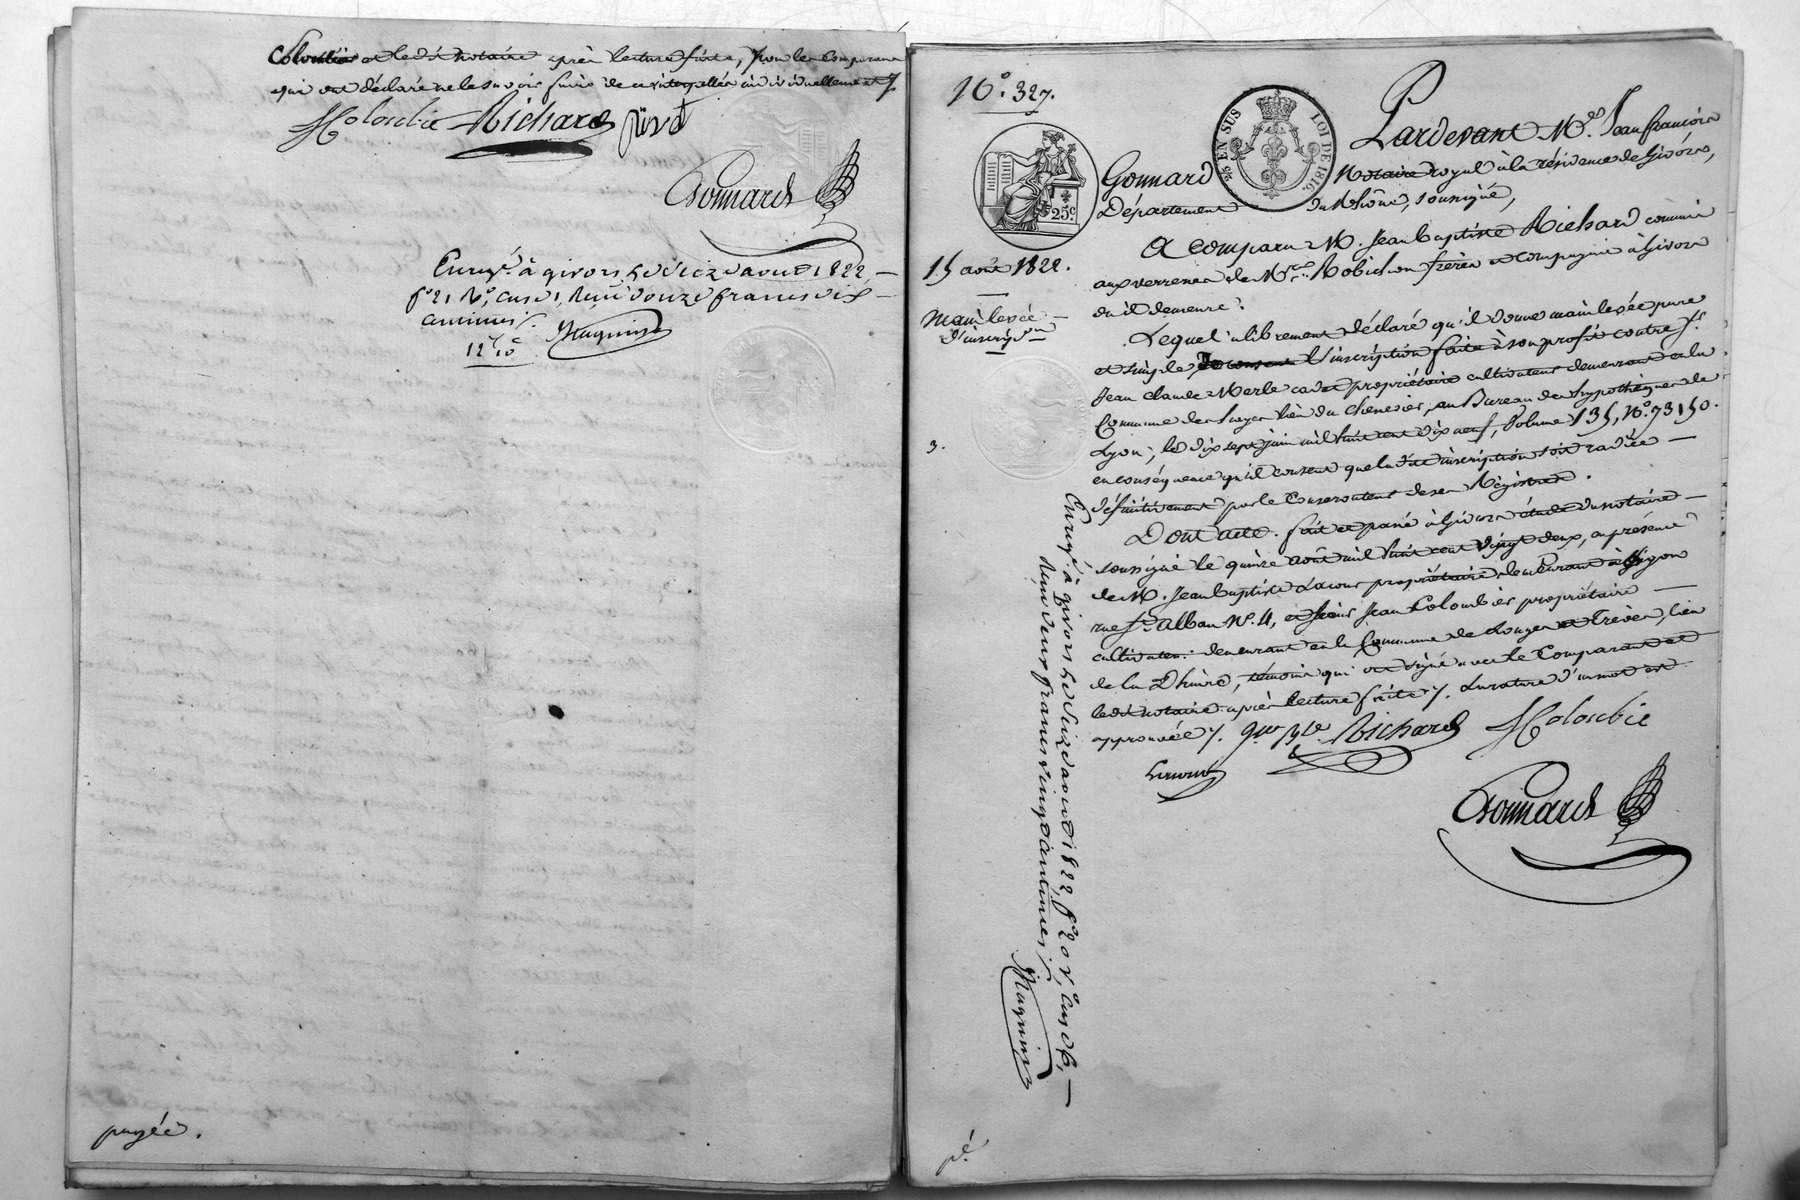 Colombier et ledit notaire après lecture faite, non les comparans
qui ont déclaré ne le savoir faire de ce interpellés individuellement ./.
J Colombié Richard pivot
Gonnard
Enreg.é à givors le seize aout 1822 —
f.o 21 R.o, case 1, Reçu douze francs dix —
centimes ./.
12f 10c Magnin
payée.
N.o 327.
25c
25c EN SUS
LOI DE 1816.
Pardevant M.e Jean françois
Gonnard Notaire royal à la résidence de Givors,
Département du Rhône, soussigné,
15 août 1822.
Main levée —
d'inscrip.on
3.
A comparu M. Jean Baptiste Richard commis
aux verreries de M.rs Robichon frères et compagnie à Givors
où il demeure.
Lequel a librement déclaré qu'il donne main levée pure
et simple de l'inscription faite à son profit contre S.r
Jean Claude Merle cadet propriétaire cultivateur demeurant en la
Commune de lieu du au Bureau des hypothèques de
Lyon, le dix sept juin mil huit cent dix neuf, volume 135, N.o 73150.
en conséquence qu'il consent que ladite inscription soit radiée —
définitivement par le Conservateur de ses Régistres.
Dont acte. fait et passé à Givors étude du notaire —
soussigné le quinze août mil huit cent vingt deux, en présence
de M. Jean Baptiste Lacour propriétaire demeurant à Lyon
rue S.t Alban N.o 4, et Sieur Jean Colombier propriétaire —
cultivateur demeurant en la Commune de Longes et Trèves, lieu
de la témoins qui ont signé avec le Comparant et
ledit notaire après lecture faite ./. La rature d'un mot est
approuvée ./. Richard J Colombié
Lacour
Gonnard
Enreg.é à givors le seize aout 1822, f.o 20 V.o, case 6, —
Reçu deux francs vingt centimes ./. Magnin
pé.